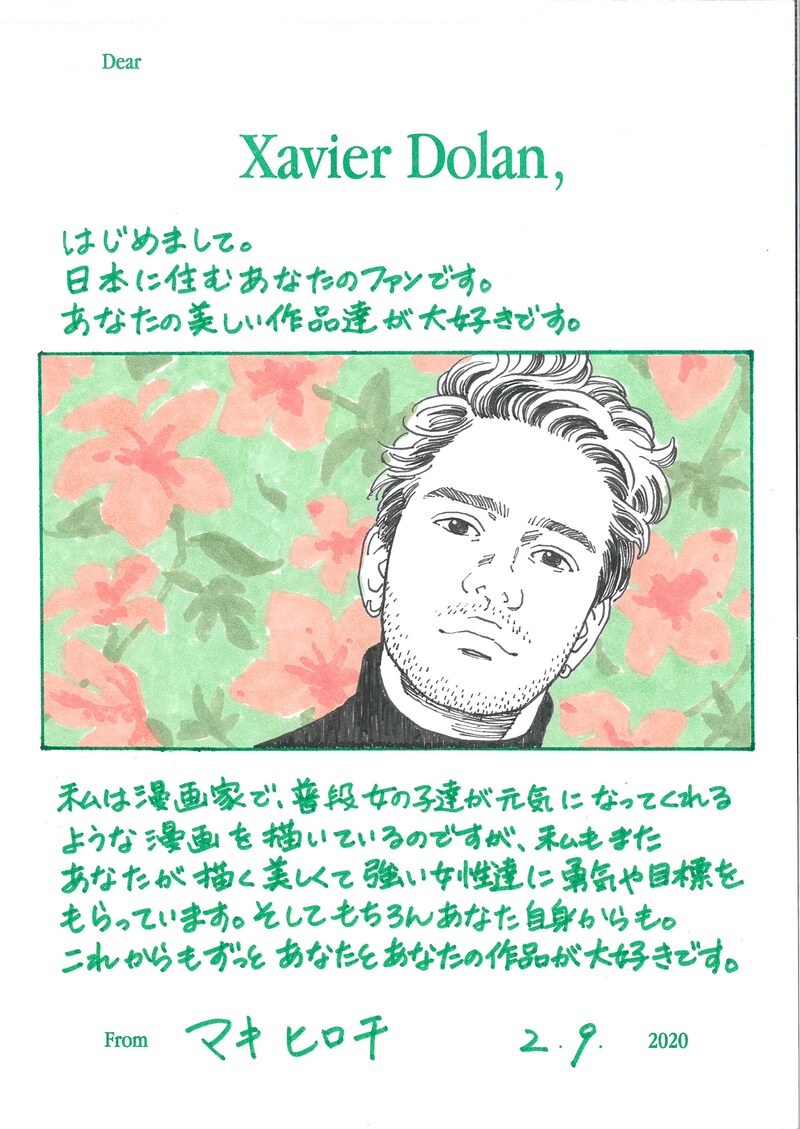 Dear
Xavier Dolan,
はじめまして。
日本に住むあなたのファンです。
あなたの美しい作品達が大好きです。
私は漫画家で、普段女の子達が元気になってくれる
ような漫画を描いているのですが、私もまた
あなたが描く美しくて強い女性達に勇気や目標を
もらっています。そしてもちろんあなた自身からも。
これからもずっとあなたとあなたの作品が大好きです。
From マキヒロチ 2.9. 2020